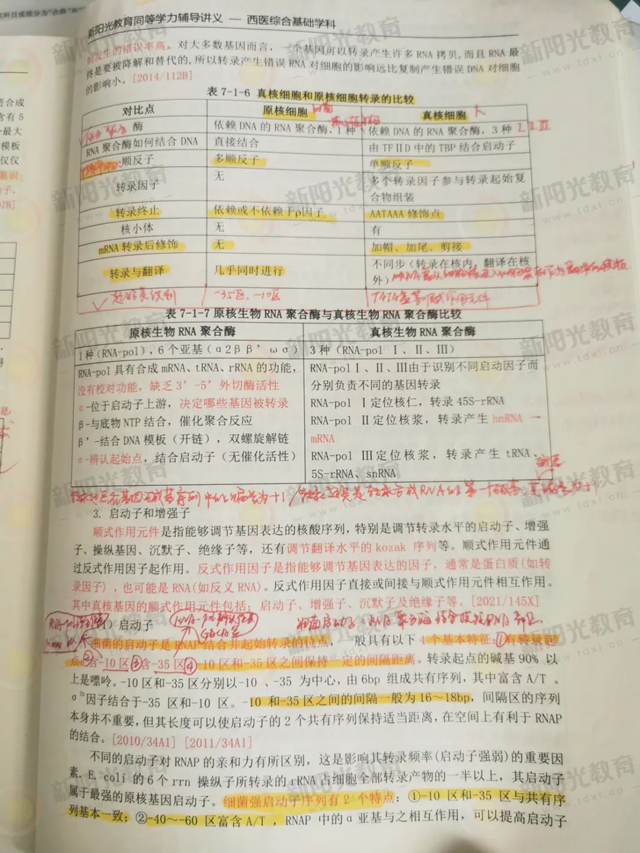 新阳光教育同等学力辅导讲义 — 西医综合基础学科
制发生的错误率高。对大多数基因而言,一个基因可以转录产生许多RNA拷贝,而且RNA最
终是要被降解和替代的,所以转录产生错误RNA对细胞的影响远比复制产生错误DNA对细胞
的影响小。[2014/112B]
表 7-1-6 真核细胞和原核细胞转录的比较
对比点 原核细胞 真核细胞
酶 依赖DNA的RNA聚合酶,1种 依赖DNA的RNA聚合酶,3种 I II III
RNA聚合酶如何结合DNA 直接结合 由TFⅡD中的TBP结合启动子
顺反子 多顺反子 单顺反子
转录因子 无 多个转录因子参与转录起始复
合物组装
转录终止 依赖或不依赖于ρ因子 AATAAA 修饰点
核小体 无 有
mRNA转录后修饰 无 加帽、加尾、剪接
转录与翻译 几乎同时进行 不同步(转录在核内,翻译在核
外)
-35区、-10区
表 7-1-7 原核生物RNA聚合酶与真核生物RNA聚合酶比较
原核生物RNA聚合酶 真核生物RNA聚合酶
1种(RNA-pol),6个亚基(α2ββ'ωσ) 3种(RNA-pol Ⅰ、Ⅱ、Ⅲ)
RNA-pol具有合成mRNA、tRNA、rRNA的功能, RNA-polⅠ、Ⅱ、Ⅲ由于识别不同启动因子而
没有校对功能,缺乏3'-5'外切酶活性 分别负责不同的基因转录
α-位于启动子上游,决定哪些基因被转录 RNA-pol Ⅰ定位核仁,转录45S-rRNA
β-与底物NTP结合,催化聚合反应 RNA-pol Ⅱ定位核浆,转录产生hnRNA →
β'-结合DNA模板(开链),双螺旋解链 mRNA
σ-辨认起始点,结合启动子(无催化活性) RNA-pol Ⅲ定位核浆,转录产生tRNA、
5S-rRNA、snRNA
3. 启动子和增强子
顺式作用元件是指能够调节基因表达的核酸序列,特别是调节转录水平的启动子、增强
子、操纵基因、沉默子、绝缘子等,还有调节翻译水平的kozak 序列等。顺式作用元件通
过反式作用因子起作用。反式作用因子是指能够调节基因表达的因子,通常是蛋白质(如转
录因子),也可能是RNA(如反义RNA)。反式作用因子直接或间接与顺式作用元件相互作用。
其中真核基因的顺式作用元件包括:启动子、增强子、沉默子及绝缘子等。[2021/145X]
(1) 启动子
细菌的启动子是RNAP结合并起始转录的位点,一般具有以下4个基本特征:①有转录起
点;②含-10区;③含-35区;④-10区和-35区之间保持一定的间隔距离。转录起点的碱基90%以
上是嘌呤。-10区和-35区分别以-10、-35为中心,由6bp组成共有序列,其中富含A/T。
σ因子结合于-35区和-10区。-10和-35区之间的间隔一般为16~18bp,间隔区的序列
本身并不重要,但其长度可以使启动子的2个共有序列保持适当距离,在空间上有利于RNAP
的结合。[2010/34A1] [2011/34A1]
不同的启动子对RNAP的亲和力有所区别,这是影响其转录频率(启动子强弱)的重要因
素。E. coli的6个rrn操纵子所转录的rRNA占细胞全部转录产物的一半以上,其启动子
属于最强的原核基因启动子。细菌强启动子序列有2个特点:①-10区和-35区与共有序
列基本一致;②-40~-60区富含A/T,RNAP中的α亚基与之相互作用,可以提高启动子